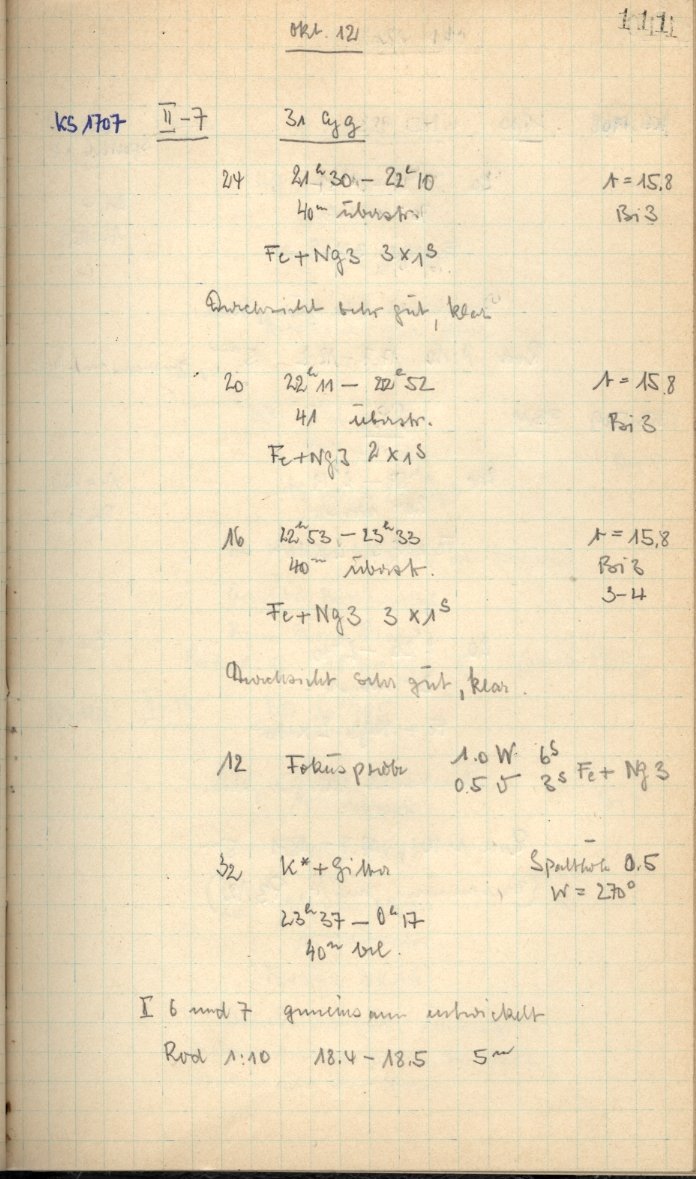 111
Okt. 12
KS 1707 II-7 31 Cyg
24 21ʰ30 – 22ʰ10 t = 15,8
40ᵐ überstr. Bi 3
Fe+Ng3 3×1ˢ
Durchsicht sehr gut, klar
20 22ʰ11 – 22ʰ52 t = 15.8
41 überstr. Bi 3
Fe+Ng3 2×1ˢ
16 22ʰ53 – 23ʰ33 t = 15,8
40ᵐ überst. Bi 3
3-4
Fe+Ng3 3×1ˢ
Durchsicht sehr gut, klar.
12 Fokusprobe 1.0 W 6ˢ
0.5 V 3ˢ Fe + Ng 3
32 K* + Gitter Spalthöhe 0.5
W = 270°
23ʰ37 – 0ʰ17
40ᵐ bel.
II 6 und 7 gemeinsam entwickelt
Rod 1:10 18.4 – 18.5 5ᵐ